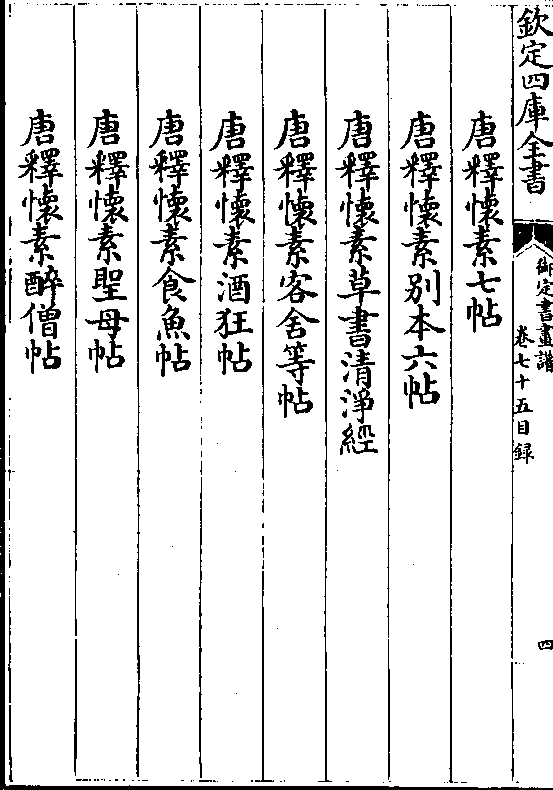 欽定四庫全書
御定書畫譜
卷七十五目録
四
唐釋懷素七帖
唐釋懷素别本六帖
唐釋懷素草書清淨經
唐釋懷素客舍等帖
唐釋懷素酒狂帖
唐釋懷素食魚帖
唐釋懷素聖母帖
唐釋懷素醉僧帖